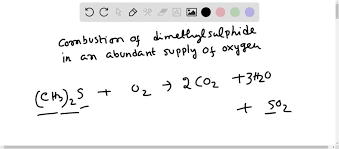 Combustion of dimethylsulphide
in an abundant supply of oxygen
(CH3)2S + O2 → 2CO2 + 3H2O
+ SO2